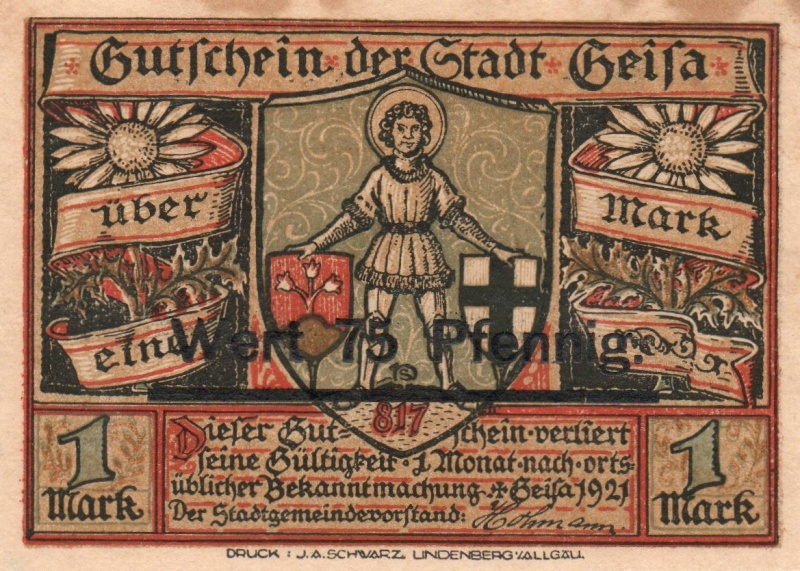 Gutschein der Stadt Geisa
über
Mark
eine
Wert 75 Pfennig.
817
1
Mark
Dieser Gut- schein verliert
seine Gültigkeit 1 Monat nach orts-
üblicher Bekanntmachung. Geisa 1921
Der Stadtgemeindevorstand:
1
Mark
DRUCK : J.A. SCHWARZ, LINDENBERG/ALLGÄU.